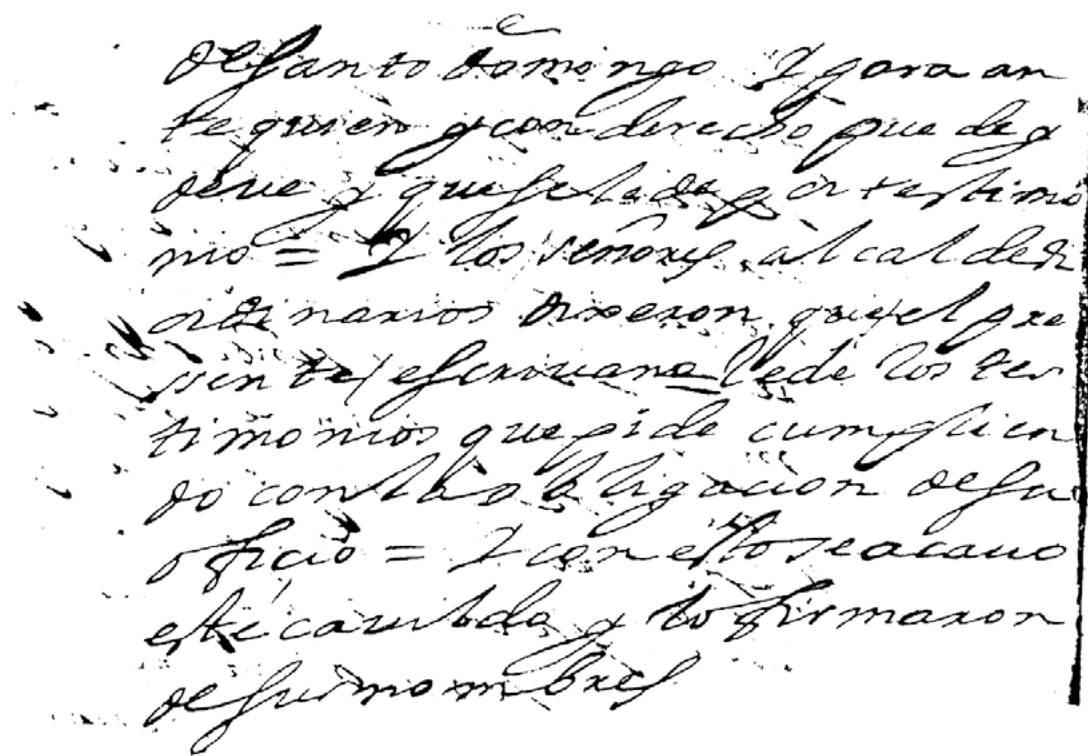 de santo domingo Y para an
te quien y con derecho puede y
deue y que se le de por testimo
nio = Y los señores alcaldes
ordinarios dixeron que el pre
ssente escriuano le de los tes
timonios que pide cumplien
do con la obligacion de su
oficio = Y con esto se acauo
este cauildo y lo firmaron
de sus nombres